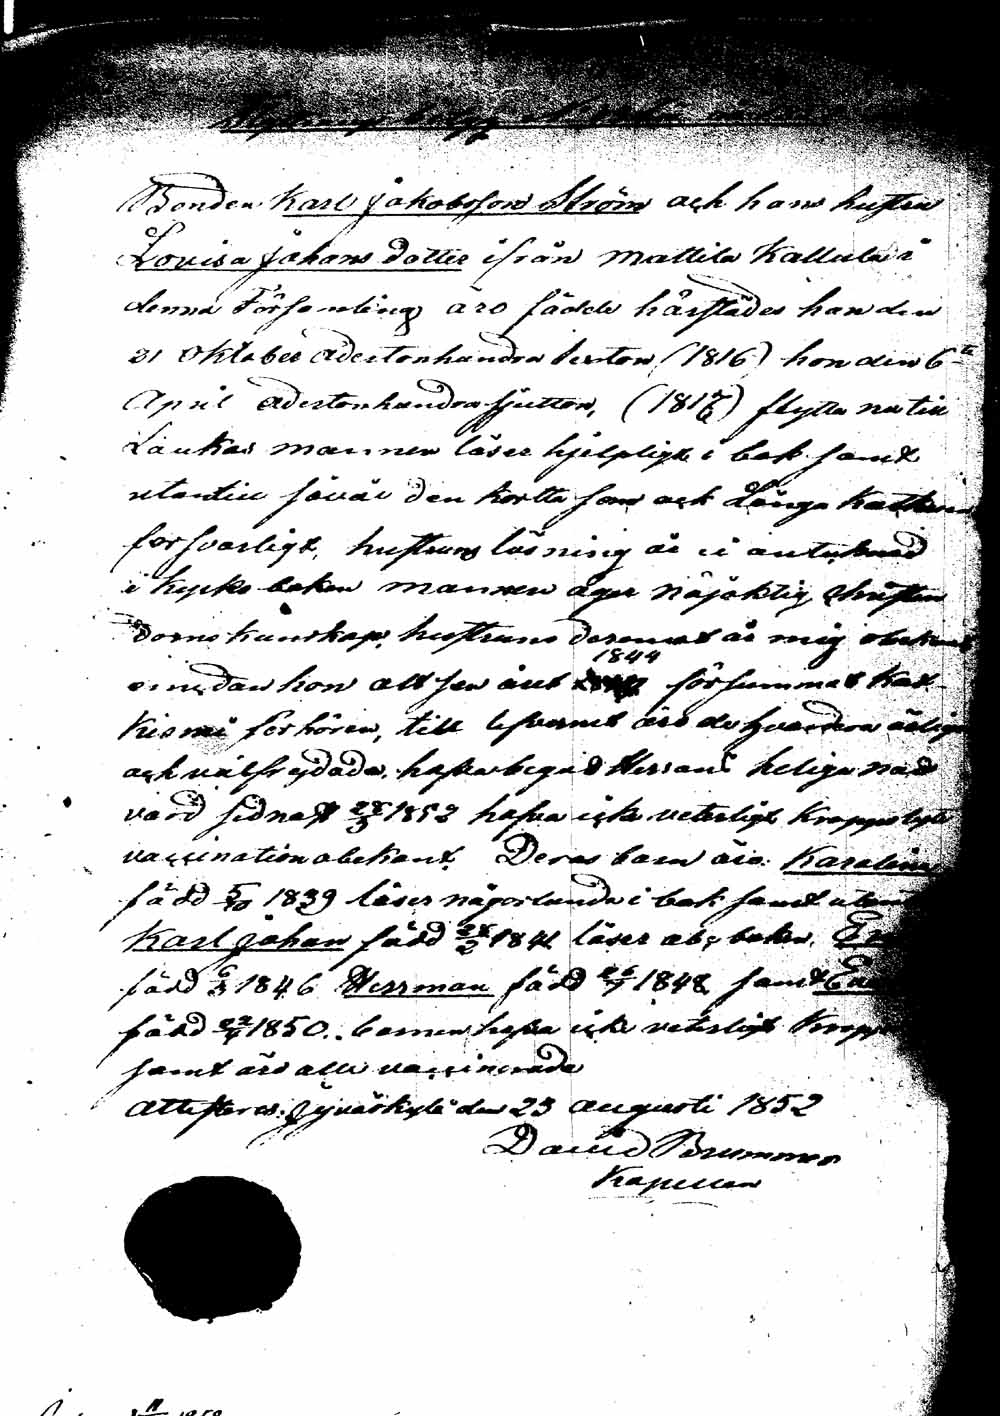 Bonden Karl Jakobsson Ström ock hans hustru
Lovisa Johans dotter ifrån Mattila Kallula i
denna Församling äro födde härstädes han den
21 Oktober Adertonhundra sexton (1816) hon den 6te
April Adertonhundra sjutton, (1817) flytta nu till
Laukas mannen läser hjelpligt i bok samt
utantill såväl den kortta som ock Långa
försvarligt, hustruns läsning är ei antecknad
i kyrko boken mannen äger nöjaktig christen
doms kunskap, hustruns deremot är mig obekant
emedan hon allt sen året 1844 försummat Kat-
kismi förhören, till lefvernet äro de hvardera ärliga
ock välfrejdade, hafva begått Herrans heliga natt
vard sidnast 1852 hafva icke veterligt Kroppslyte
vaccination obekant. Deras barn äro: Karolina
född 5/10 1839 läser någorlunda i bok samt
Karl Johan född 1841 läser abc boken,
född 1846 Herrman född 1848 samt
född 1850.. barnen hafva icke veterligt
samt äro alla vaccinerade
Attesteras. Jyväskylä den 23 Augusti 1852
David Brummer
Kapellan